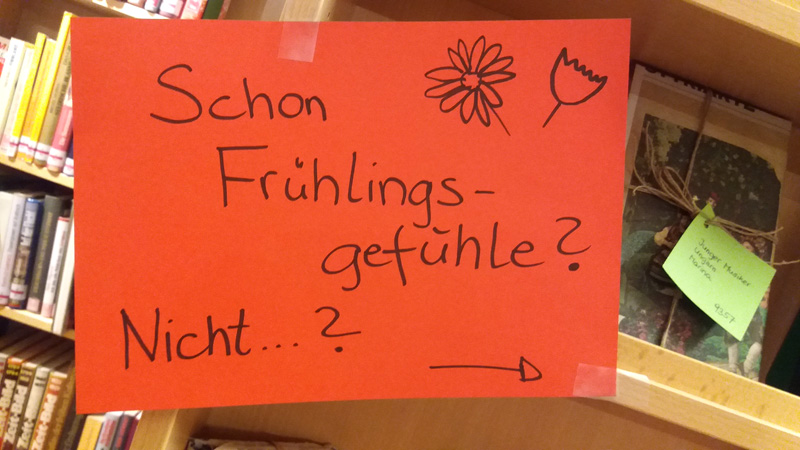 Schon
Frühlings-
gefühle?
Nicht...?
Junger Mann
9357